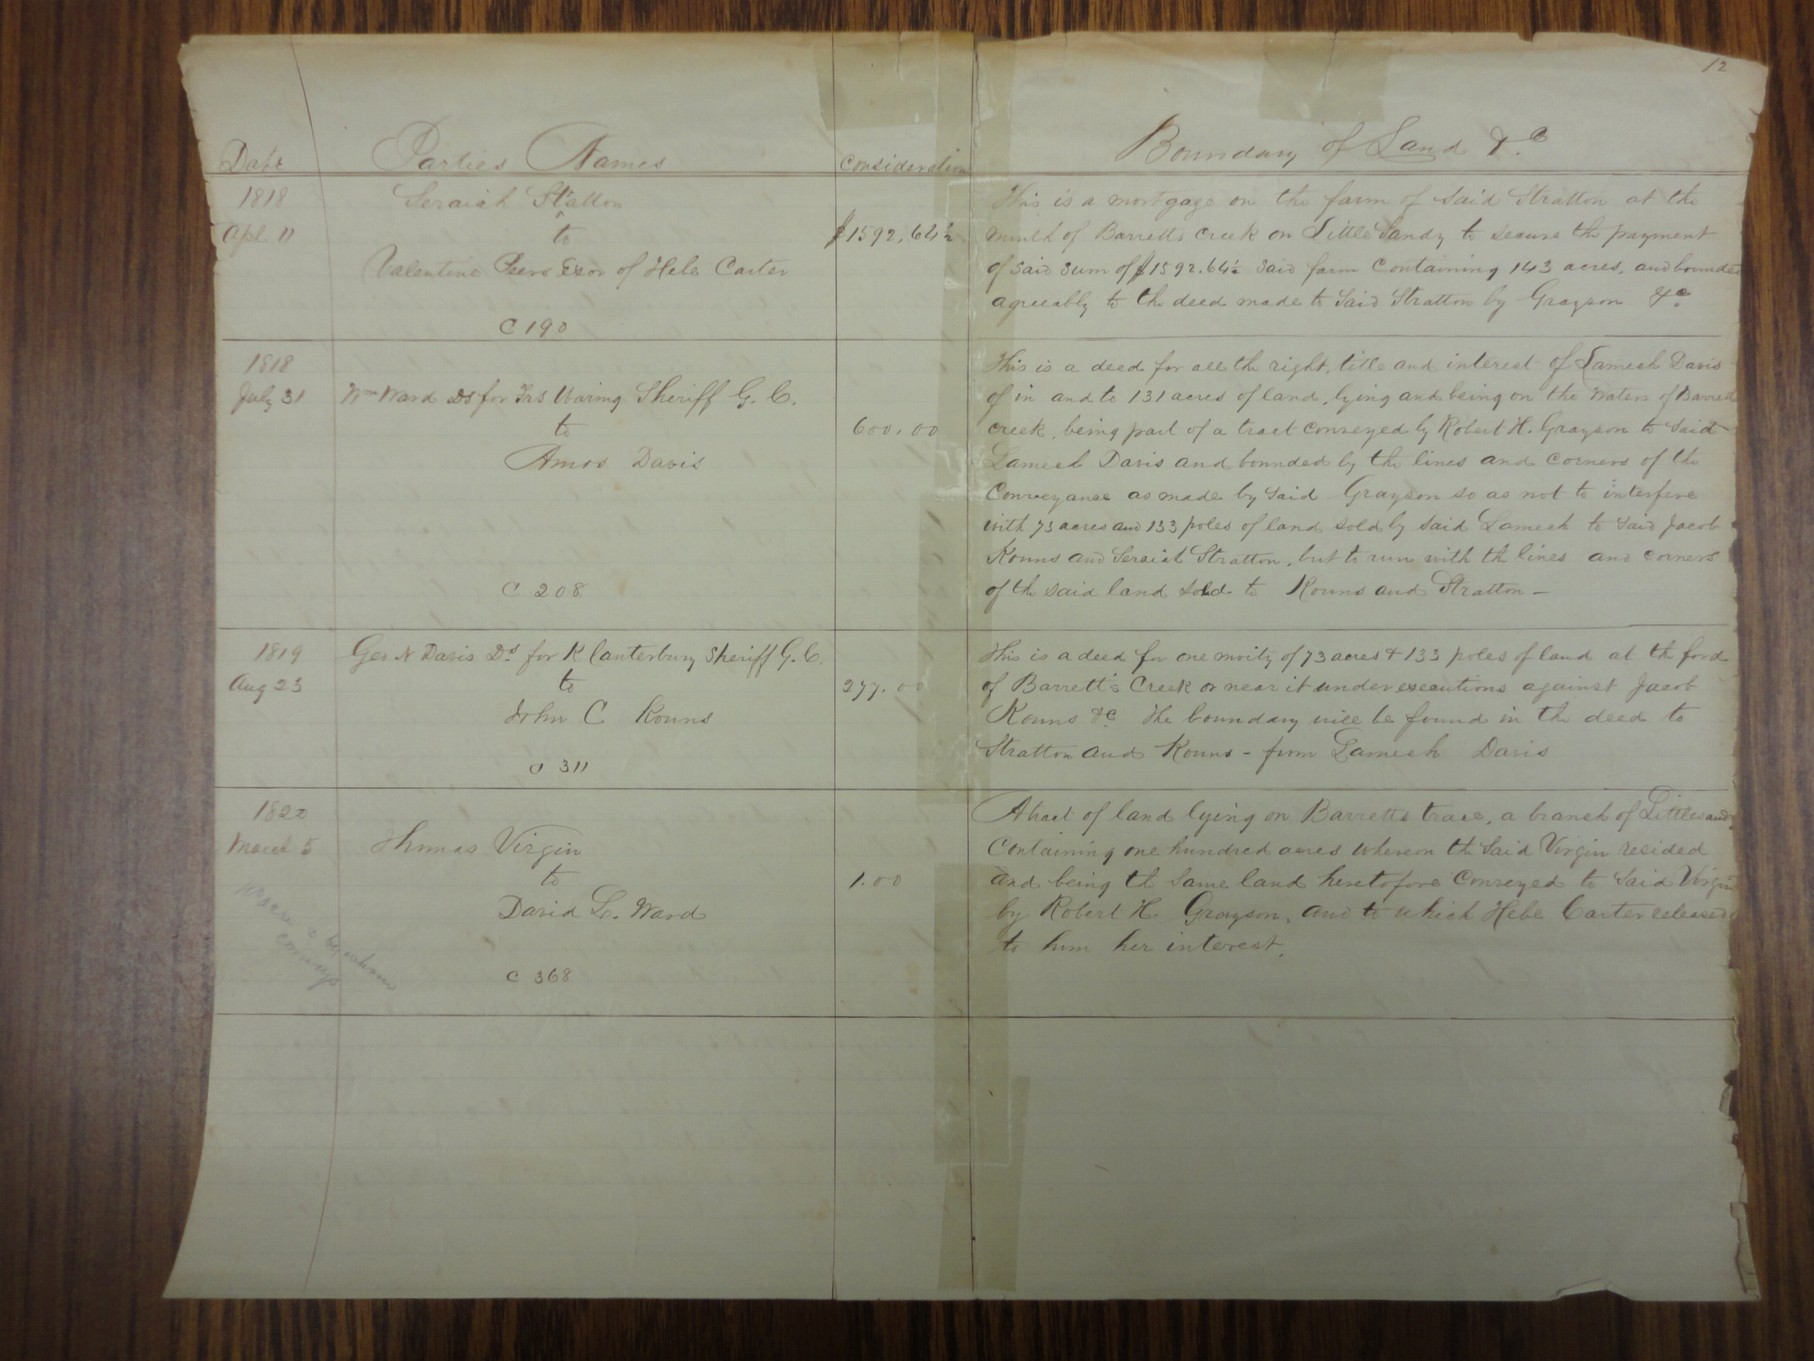 12
Date Parties Names Consideration Boundary of Land &c
1818
Apl. 11
Seraiah Statton
to
Valentine Peers Exor of Hebe Carter
C 190
$1592.64½
This is a mortgage on the farm of said Stratton at the
mouth of Barretts Creek on Little Sandy to secure the payment
of said sum of $1592.64½ said farm containing 143 acres, and bounded
agreeably to the deed made to said Stratton by Grayson &c
1818
July 31
Wm Ward DS for Trs Waring Sheriff G. C.
to
Amos Davis
C 208
600.00
This is a deed for all the right, title and interest of Lamech Davis
of in and to 131 acres of land, lying and being on the waters of Barrett
creek, being part of a tract conveyed by Robert H. Grayson to said
Lamech Davis and bounded by the lines and corners of the
Conveyance as made by said Grayson so as not to interfere
with 73 acres and 133 poles of land sold by said Lamech to said Jacob
Kouns and Seraiah Stratton, but to run with th lines and corners
of th said land sold to Kouns and Stratton -
1819
Aug 23
Geo N Davis Ds for R Canterbury Sheriff G. C.
to
John C Kouns
C 311
277.00
This is a deed for one moity of 73 acres & 133 poles of land at th ford
of Barrett's Creek or near it under executions against Jacob
Kouns &c The boundary will be found in the deed to
Stratton and Kouns - from Lamech Davis
1820
March 5
Thomas Virgin
to
David L. Ward
C 368
1.00
A tract of land lying on Barretts trace, a branch of Little sandy
Containing one hundred acres whereon th said Virgin resided
and being th same land heretofore conveyed to said Virgin
by Robert H. Grayson, and to which Hebe Carter released
to him her interest.
by whom